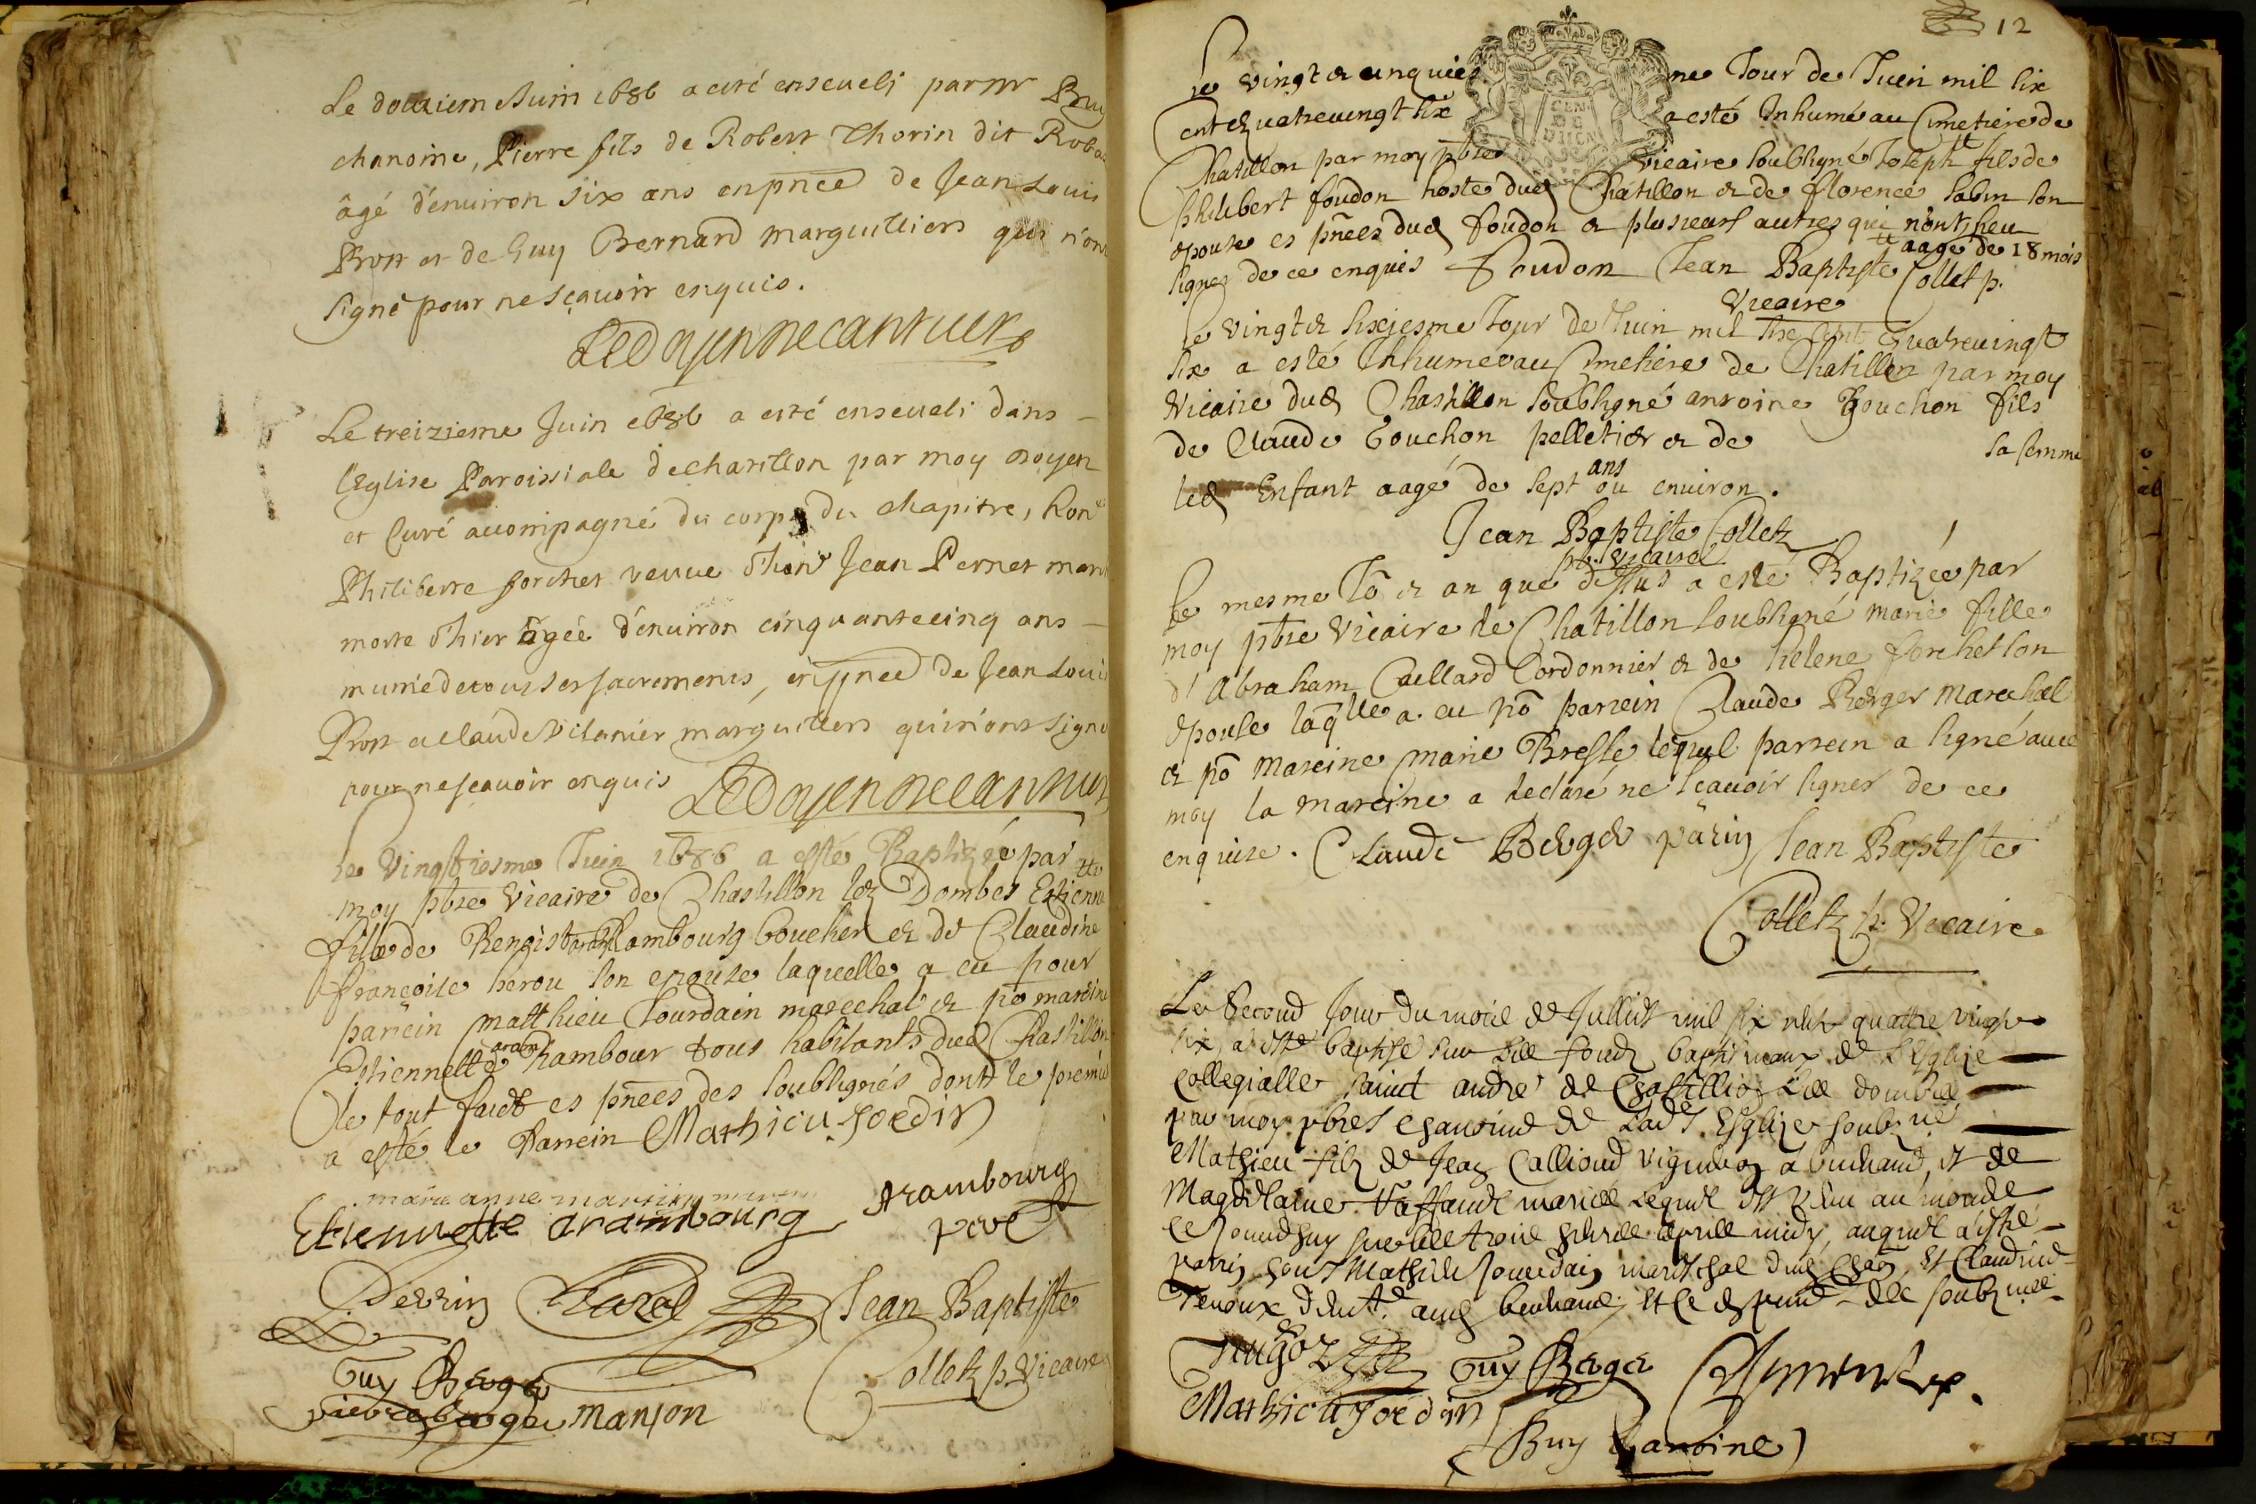 Le douziem Juin 1686 a esté enseveli par mr Buy
chanoine, Pierre fils de Robert Thorin dit Robe
âgé d'environ six ans en pñce de Jean Louis
Pron et de Guy Bernard marguilliers qui n'ont
signé pour ne sçavoir enquis.
Le treizieme Juin 1686 a esté enseveli dans
l'Eglise Paroissiale de chatillon par moy doyen
et Curé accompagné du corps du chapitre, hon
Philiberte forchet veuve d'hon Jean Pernet
morte d'hier âgée d'environ cinquantecinq ans
munie de tous ses sacrements, en pñce de Jean Loui
Pron et Claude marguilliers qui n'ont signé
pour ne sçavoir enquis
Le Vingtiesme Juin 1686 a esté Baptizée par
moy pbre Vicaire de Chastillon lez Dombes Estienne tte
fille de Benoist arambourg boucher et de Claudine
françoise herou son epouze laquelle a eu pour
parrein Matthieu Jourdain mareschal et po mareine
Estiennette arambour tous habitants dud Chastillon
le tout faict es pñces des soubsignés dont le premie
a esté le Parrein Mathieu Joedin
marie anne
Etiennette arambourg arambourg
pere
Perrin Jean Baptiste
Guy Berger Colletz p. Vicaire
pierre berger manion
12
Le vingt et cinquiesme Jour de Juin mil six
cent quatrevingt six a esté Inhumé au Cimetiere de
Chatillon par moy pbre Vicaire soubsigné Joseph t fils de
philibert foudon hoste dud Chatillon et de florence sabin son
epouse es pñces dud foudon et plusieurs autres qui n'ont sceu
signer de ce enquis t aage de 18 mois
Foudon Jean Baptiste Collet p.
Vicaire
Le vingt et sixiesme Jour de Juin mil six cent Quatrevingt
six a esté Inhumé au Cimetiere de Chatillon par moy
Vicaire dud Chastillon soubsigné antoine Gouchon fils
de Claude Gouchon pelletier et de sa femme
led Enfant aagé de sept ans ou environ.
Jean Baptiste Colletz
p. Vicaire
Le mesme Jo et an que dessus a esté Baptizée par
moy pbre Vicaire de Chatillon soubsigné marie fille
d'Abraham Caillard Cordonnier et de helene forchet son
epouse laqlle a eu po parrein Claude Berger Marechal
et po Mareine Marie Bresse lequel parrein a signé avec
moy la mareine a declaré ne sçavoir signer de ce
enquise. Claude Berger parin Jean Baptiste
Colletz p. Vicaire
Le Second Jour du mois de Juillet mil six cent quattre vingt
six, a esté baptisé sur les fondz baptismaux de l'Esglize
Collegialle saint andré de Chastillion les dombes
par moy pbre chanoine de ladt Esglize soubzné
Mathieu filz de Jean Callioud vigneron a beuhand, et de
Magdelaine mariés Lequel est venu au monde
ce Jourdhuy sur les trois heures apres midy, auquel a esté
parrin hont Mathieu Jourdain mareschal dud Chaon, et Claudine
aud beuhand, et ce es pnce des soubznes
Guy Berger
Mathieu Joedin
Buy chanoine